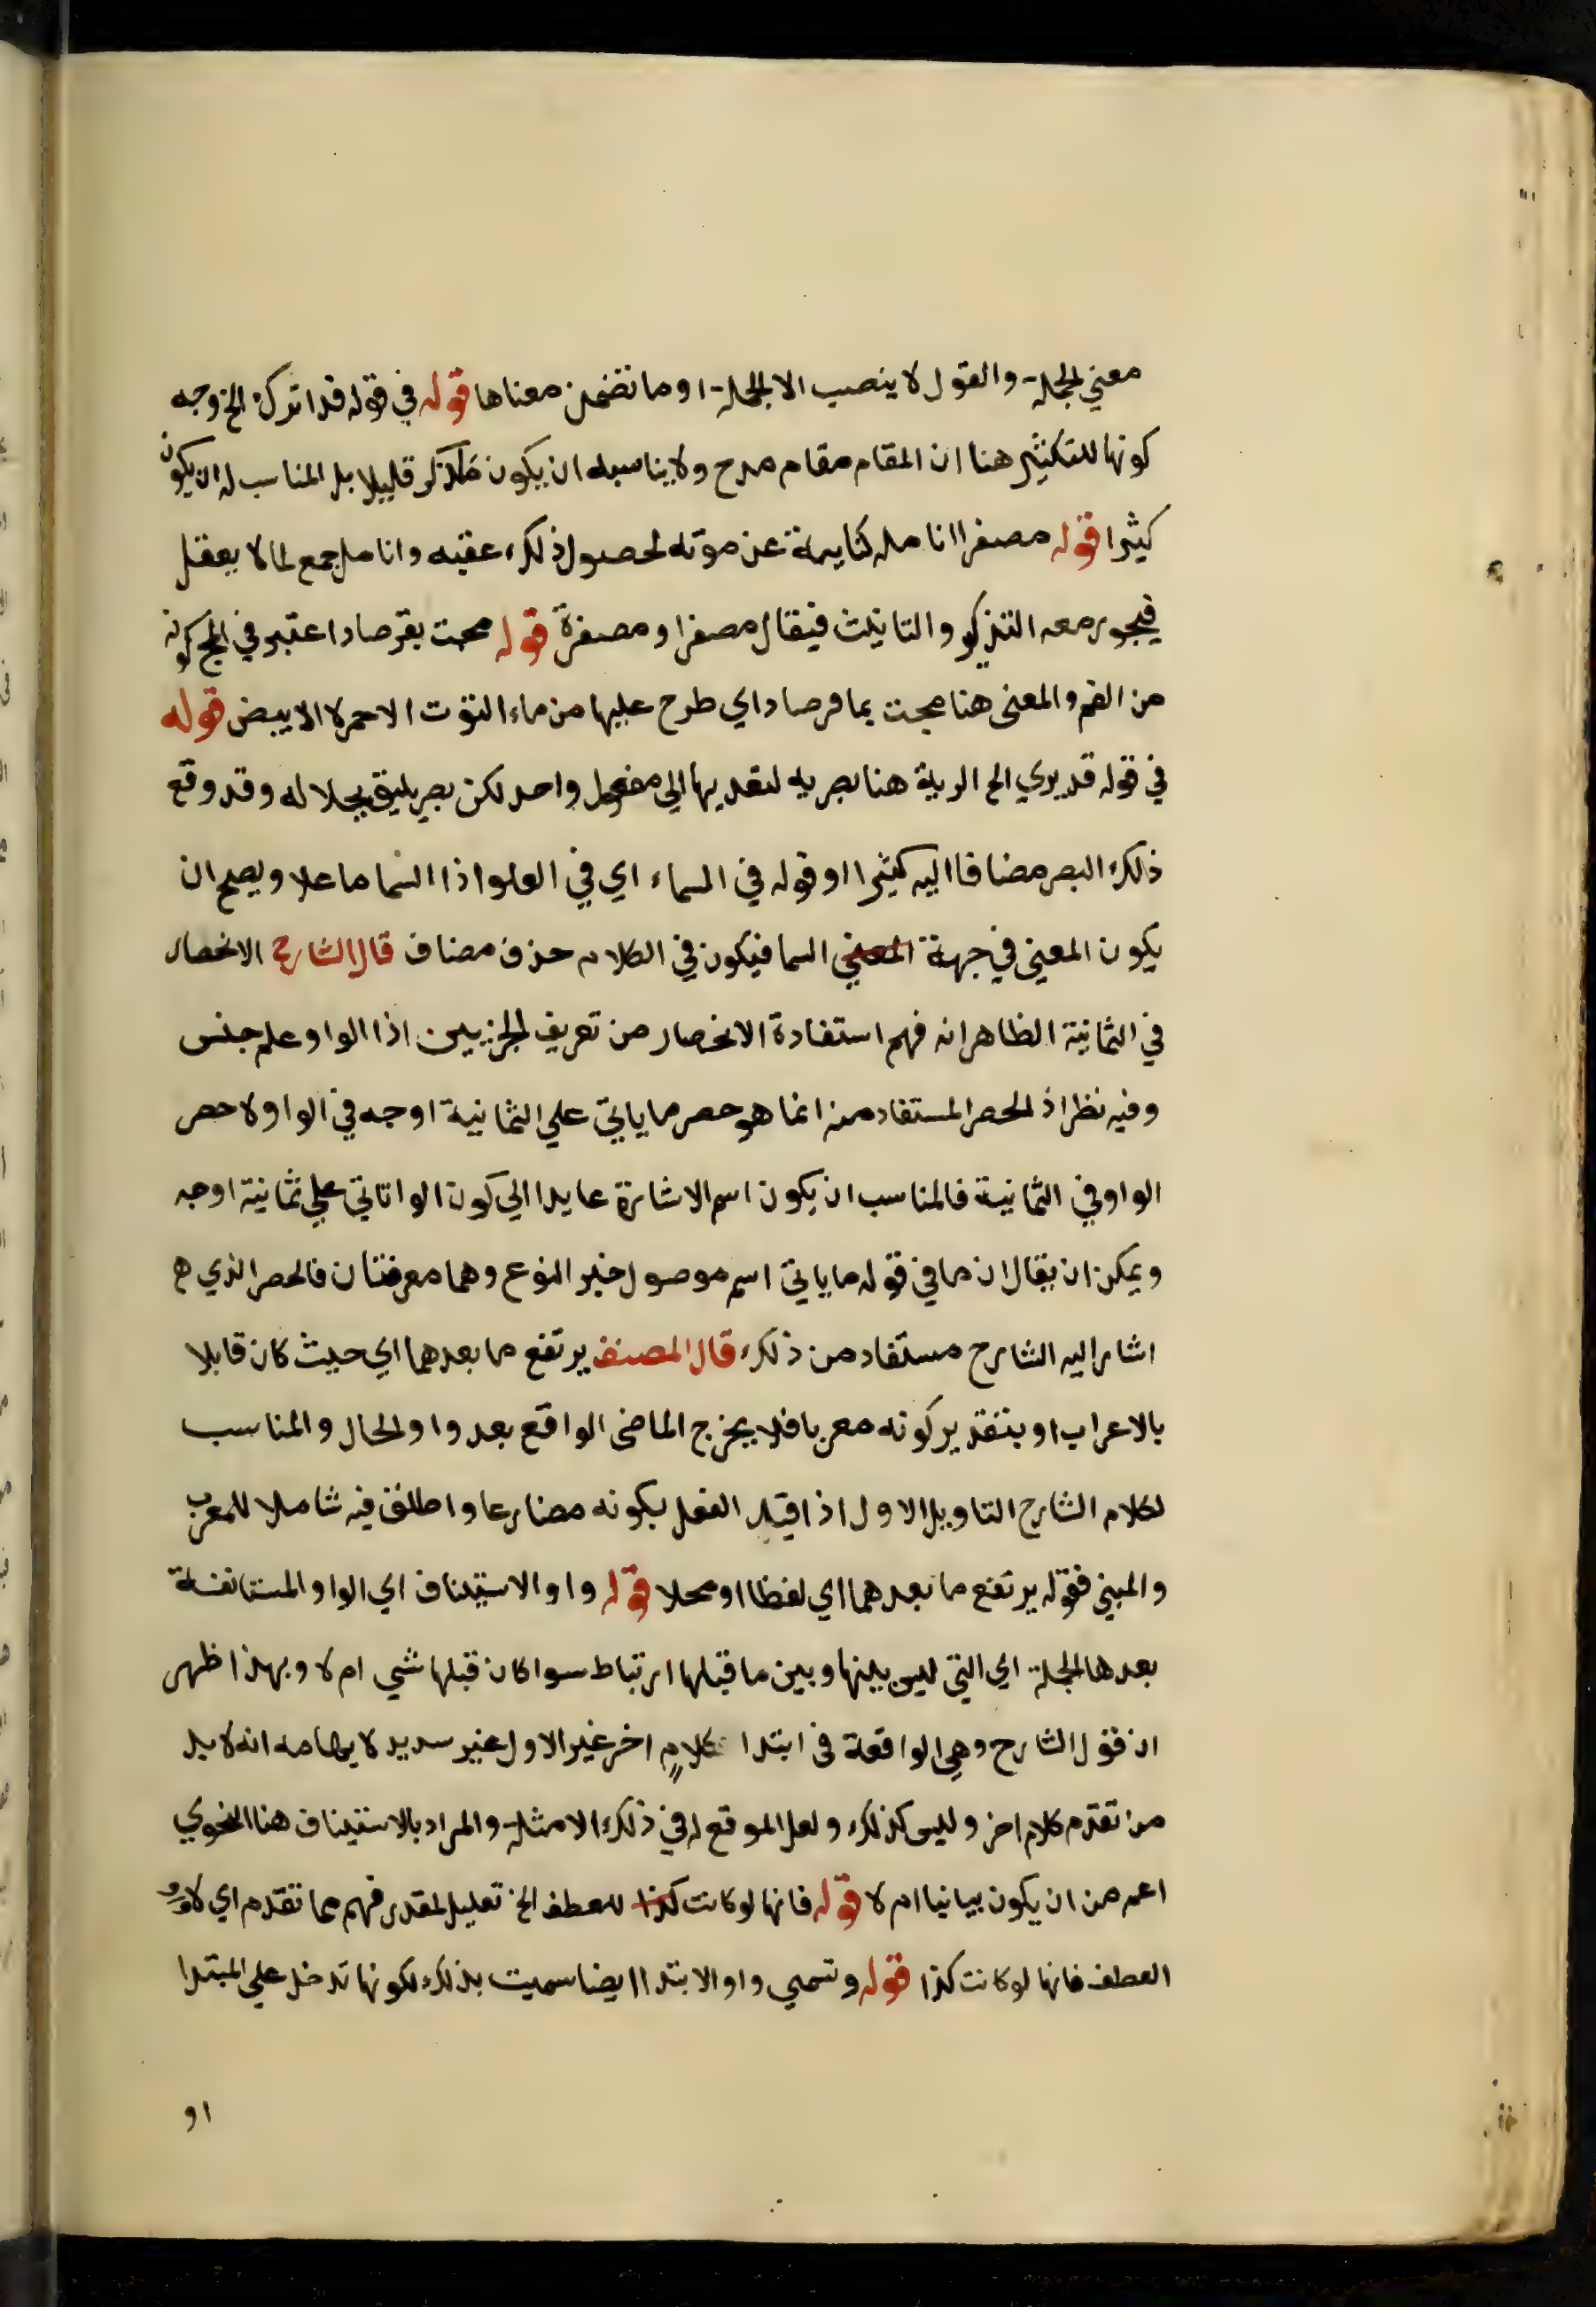 معني الجملة والقول لا ينصب الا الجملة او ما تضمن معناها قوله في قوله قد اترك الخ وجه
كونها للتكثير هنا ان المقام مقام مدح ولا يناسبه ان يكون قليلا بل المناسب له ان يكون
كثيرا قوله مصفرا انامله كناية عن موته لحصول ذلك عقبه وانامل جمع لما لا يعقل
فيجوز معه التذكير والتانيث فيقال مصفرا ومصفرة قوله مجت بفرصاد اعتبر في المج كونه
من الفم والمعنى هنا مجت بما فرصاد اي طرح عليها من ماء التوت الاحمر لا الابيض قوله
في قوله قد يري الخ الرية هنا بصرية لتعديها الي مفعول واحد لكن بصر يليق بجلاله وقد وقع
ذلك البصر مضافا اليه كثيرا او قوله في السماء اي في العلو اذ السما ما علا ويصح ان
يكون المعني في جهة المعني السما فيكون في الكلام حذف مضاف قال الشارح الانحصار
في الثمانية الظاهر انه فهم استفادة الانحصار من تعريف الجزيين اذ الواو علم جنس
وفيه نظر اذ الحصر المستفاد منه انما هو حصر ما ياتي علي الثمانية اوجه في الواو لا حصر
الواو في الثمانية فالمناسب ان يكون اسم الاشارة عايدا الي كون الواتاتي علي ثمانية اوجه
ويمكن ان يقال ان ما في قوله ما ياتي اسم موصول خبر النوع وهما معرفتان فالحصر الذي
اشار اليه الشارح مستفاد من ذلك قال المصنف يرتفع ما بعدهما اي حيث كان قابلا
بالاعراب او بتقدير كونه معربا فلا يخرج الماضي الواقع بعد واو الحال والمناسب
لكلام الشارح التاويل الاول اذ اقيد الفعل بكونه مضارعا واطلق فيه شاملا للمعرب
والمبني فقوله يرتفع ما بعدهما اي لفظا او محلا قوله واو الاستيناف اي الواو المستانفة
بعدها الجملة اي التي ليس بينها وبين ما قبلها ارتباط سوا كان قبلها شي ام لا وبهذا ظهر
ان قول الشارح وهي الواقعة في ابتدا كلام اخر غير الاول غير سديد لايهامه انه لا بد
من تقدم كلام اخر وليس كذلك ولعل الموقع له في ذلك الامثلة والمراد بالاستيناف هنا النحوي
اعم من ان يكون بيانيا ام لا قوله فانها لو كانت كذا للعطف الخ تعليل لمقدر فهم مما تقدم اي لا واو
العطف فانها لو كانت كذا قوله وتسمي واو الابتدا ايضا سميت بذلك لكونها تدخل علي المبتدا
او